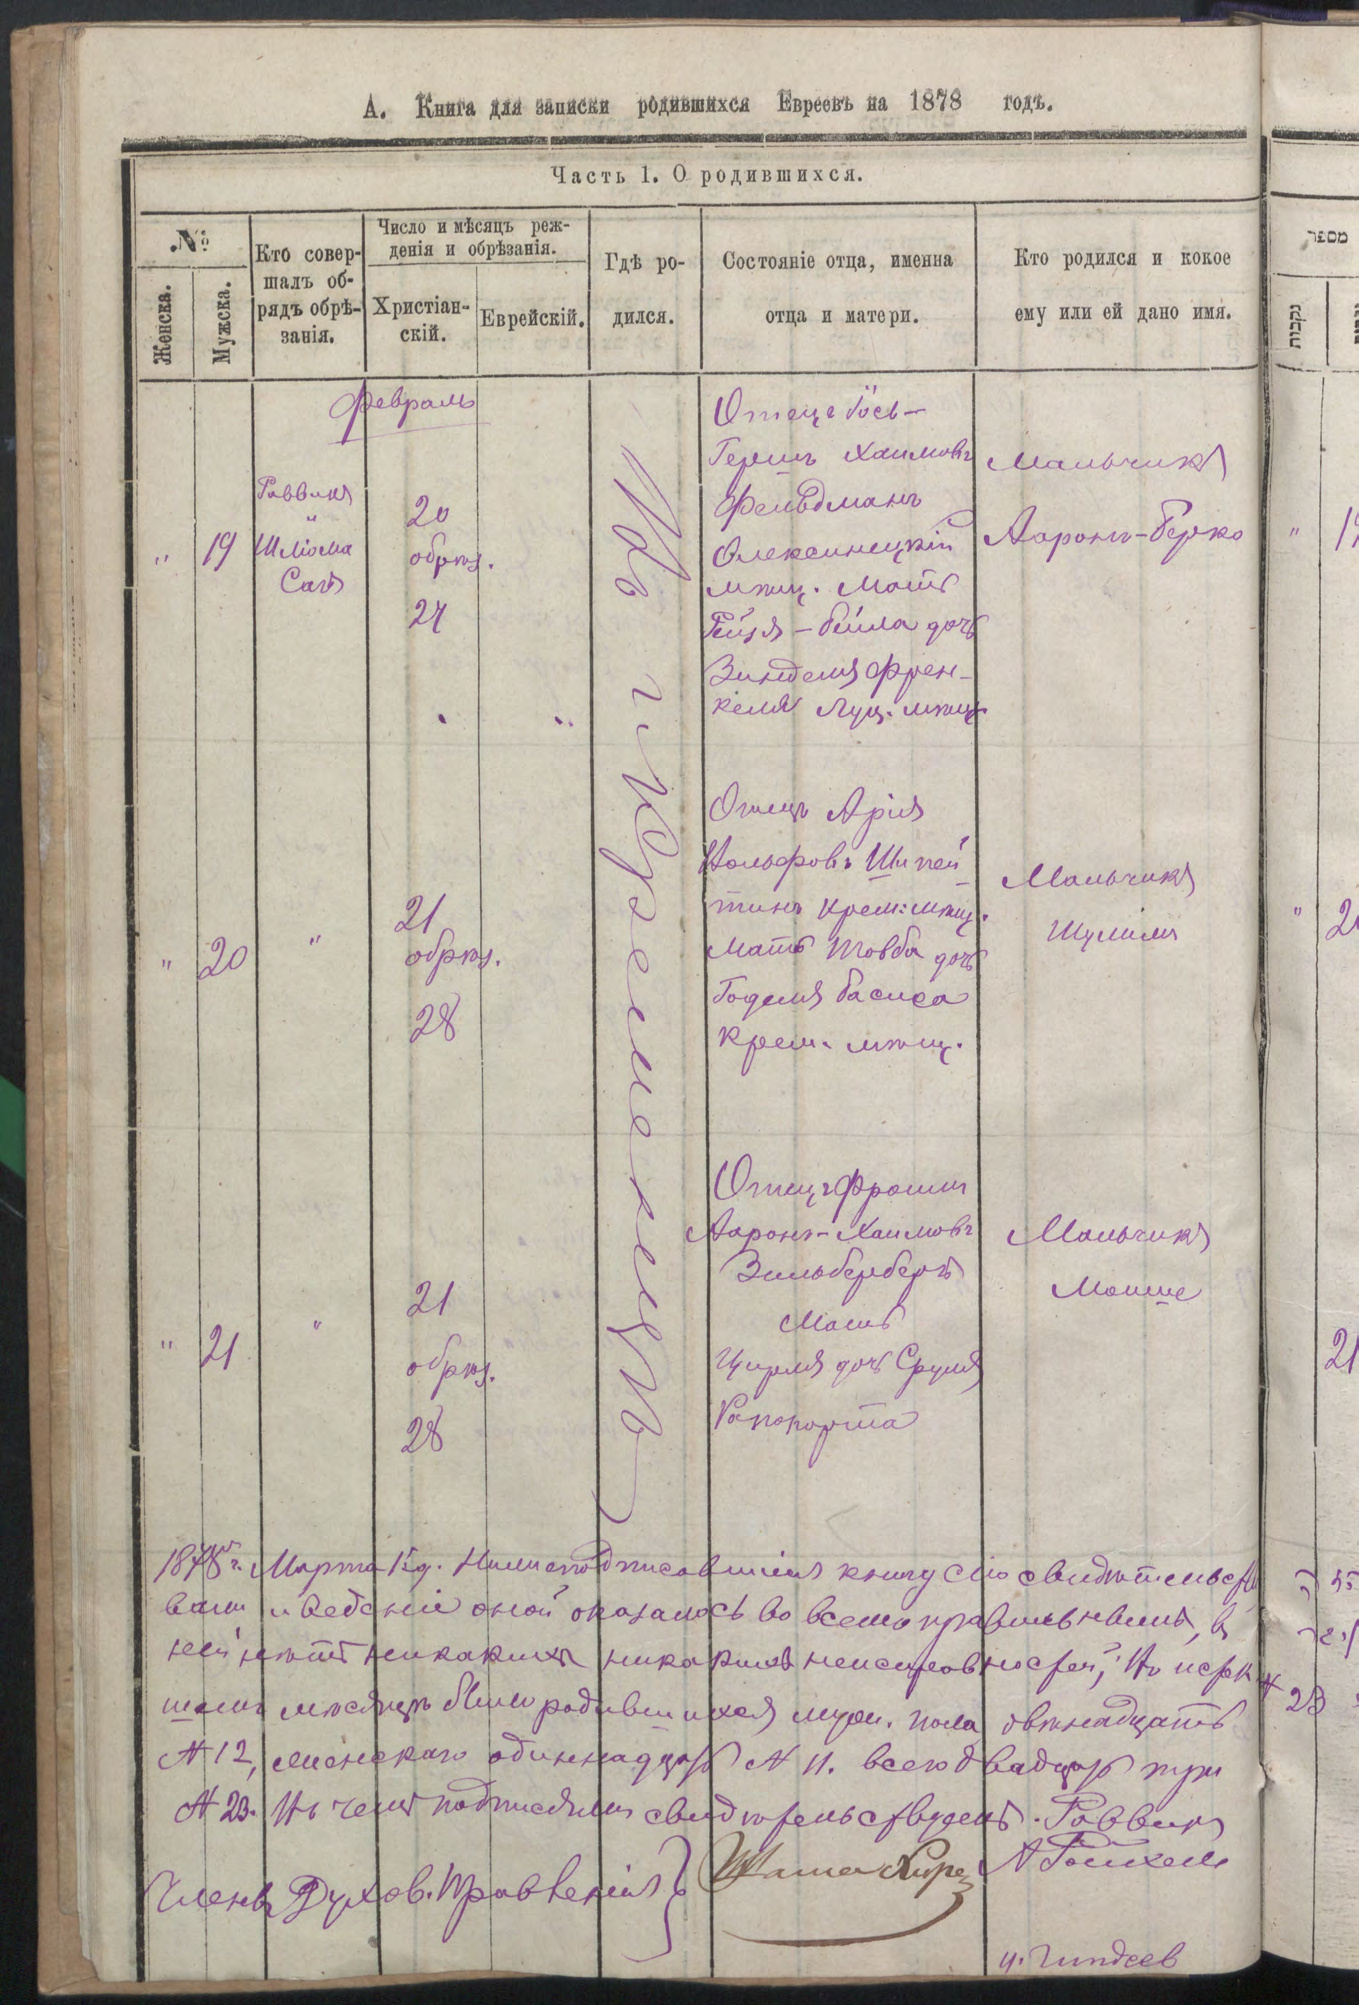 А. Книга для записки родившихся Евреевъ на 1878 годъ.
Часть 1. О родившихся.
№
Женска.
Мужска.
Кто совер-
шалъ об-
рядъ обрѣ-
занія.
Число и мѣсяцъ реж-
денія и обрѣзанія.
Христіан-
скій.
Еврейскій.
Гдѣ ро-
дился.
Состояніе отца, именна
отца и матери.
Кто родился и кокое
ему или ей дано имя.
מספר
נקבות
Февраль
Въ г. Кременецъ
" 19
Раввинъ
"
Шліома
20
обрѣз.
27
Отецъ Іось-
Гершъ Хаимовъ
Фельдманъ
Олексинецкій
мѣщ. Мать
Рейзя-Бейла дочь
Зинделя Френ-
келя Луц. мѣщ.
Мальчикъ
Ааронъ-Берко
" 20
"
21
обрѣз.
28
Отецъ Арія
Вольфовъ Шпей
тинъ Крем: мѣщ.
Мать Товба дочь
Годеля Басиса
Крем. мѣщ.
Мальчикъ
Шулимъ
" 21
"
21
обрѣз.
28
Отецъ Фроимъ
Ааронъ-Хаимовъ
Зильберберъ
Мать
Цирля дочь Сруля
Рапопорта
Мальчикъ
Моише
1878 г. Марта 1 д. Нижеподписавшіеся книгу сію свидѣтельст
вали и веденіе оной оказалось во всемъ правильнымъ, въ
ней нѣтъ никакихъ никакихъ неисправностей, Въ истек
шемъ мѣсяцѣ было родившихся муж. пола двѣнадцать
№ 12, женскаго одиннадцать № 11. всего двадцать три
№ 23. Въ чемъ подписями свидѣтельствуемъ. Раввинъ
Члены Духов. Правленія }
" 20
21
23